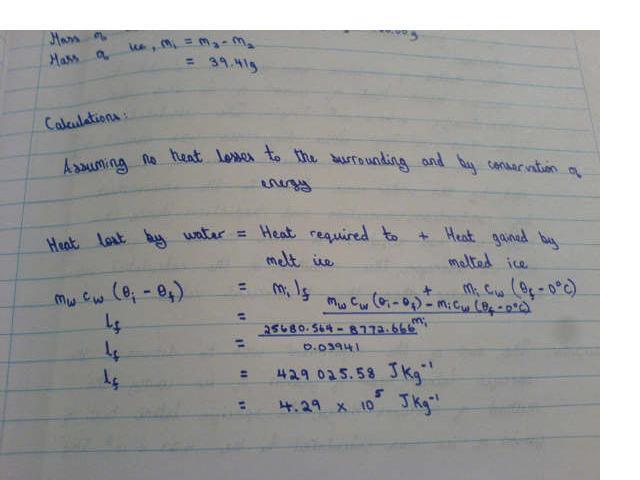 Mass of
Mass of ice, m₁ = m₃ - m₂
= 39.41g
Calculations:
Assuming no heat losses to the surrounding and by conservation of
energy
Heat lost by water = Heat required to + Heat gained by
melt ice melted ice
m_w c_w (θᵢ - θ_f) = mᵢ l_f + mᵢ c_w (θ_f - 0°C)
l_f = m_w c_w (θᵢ - θ_f) - mᵢ c_w (θ_f - 0°C) / mᵢ
l_f = 25680.564 - 8772.666 / 0.03941
l_f = 429 025.58 JKg⁻¹
= 4.29 x 10⁵ JKg⁻¹